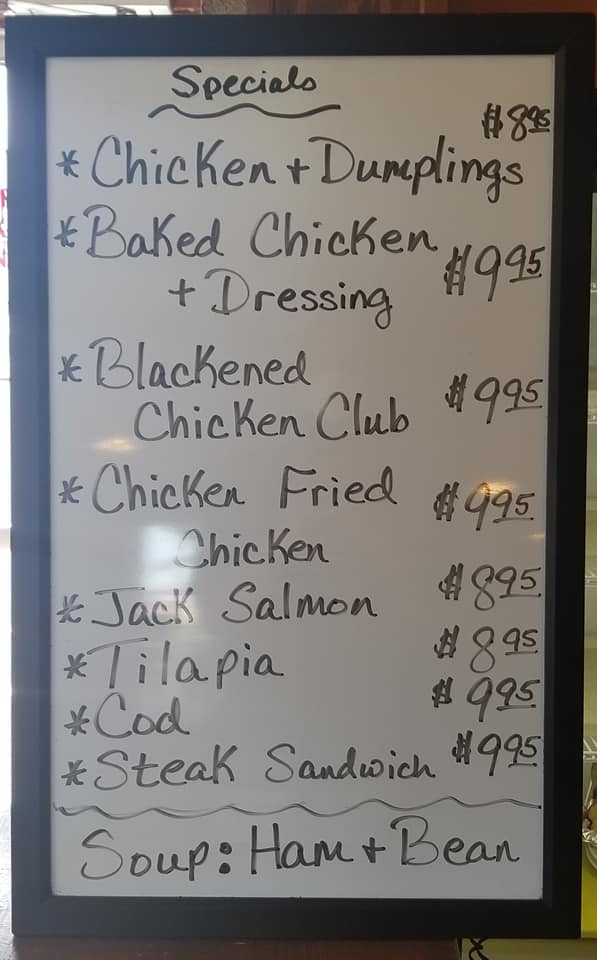 Specials
$8.95
* Chicken + Dumplings
* Baked Chicken
+ Dressing $9.95
* Blackened
Chicken Club $9.95
* Chicken Fried $9.95
Chicken
* Jack Salmon $8.95
* Tilapia $8.95
* Cod $9.95
* Steak Sandwich $9.95
Soup: Ham + Bean